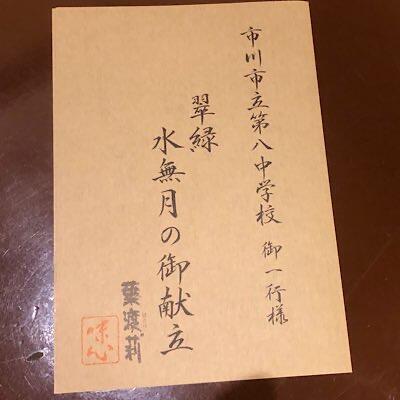 市川市立第八中学校 御一行様
翠緑
水無月の御献立
葉渡莉
味心